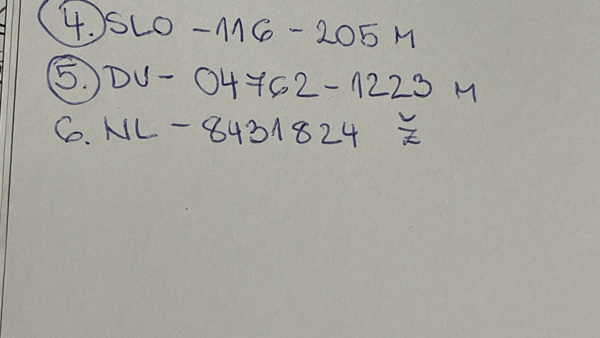 4. SLO - 116 - 205 M
5. DV - 04762 - 1223 M
6. NL - 8431824 Ž